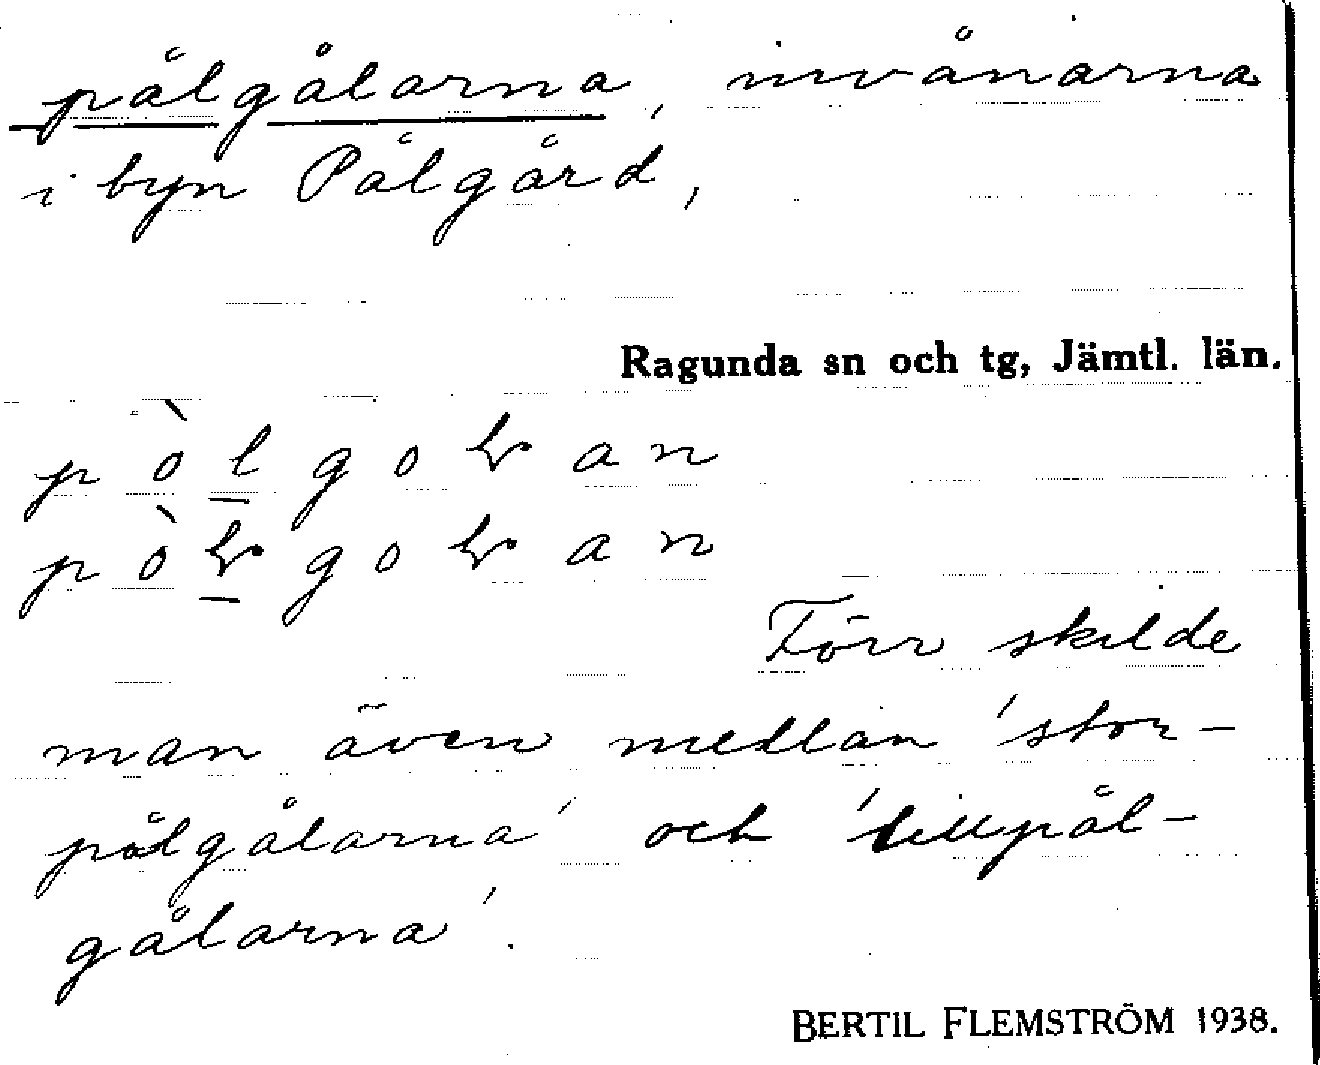 pålgålarna, invånarna
i byn Pålgård,
Ragunda sn och tg, Jämtl. län.
pòl̲goɽan
pòɽ̲goɽan
Förr skilde
man även mellan 'stor-
pålgålarna' och 'lillpål-
gålarna'.
BERTIL FLEMSTRÖM 1938.